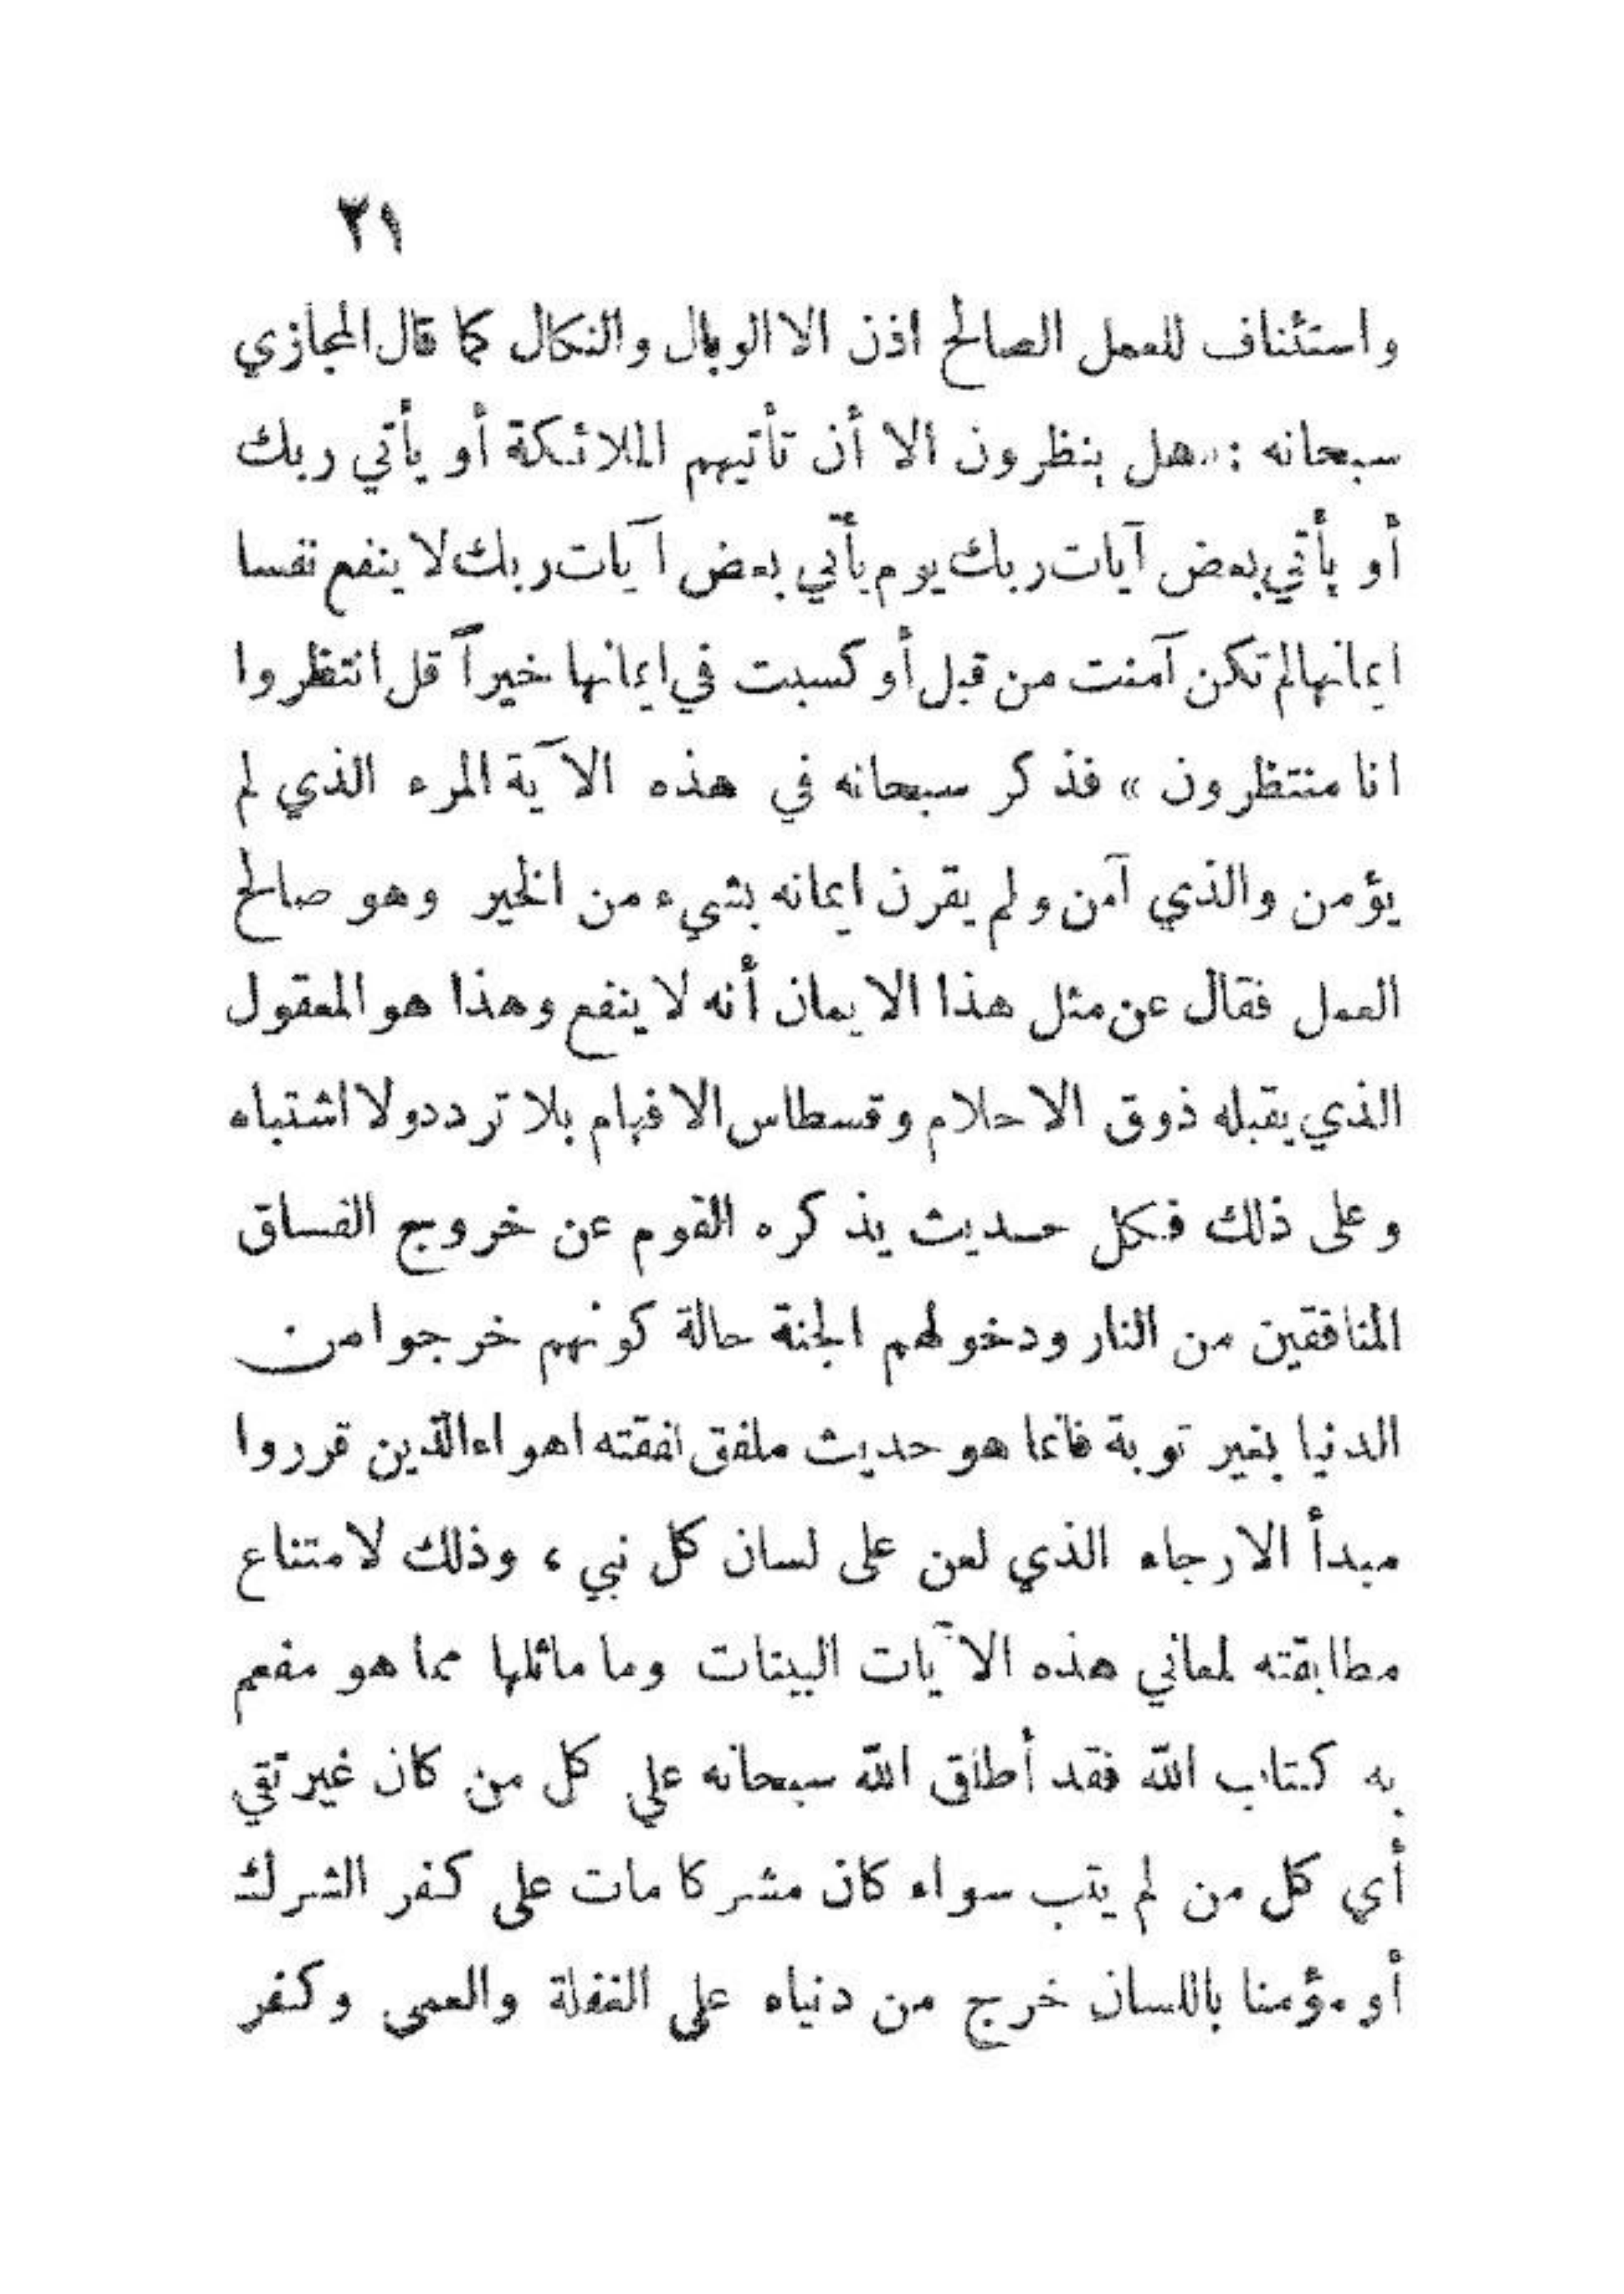 ٢١
واستئناف للعمل الصالح اذن الا الوبال والنكال كما قال المجازي
سبحانه : هل ينظرون الا أن تأتيهم الملائكة أو يأتي ربك
أو يأتي بعض آيات ربك يوم يأتي بعض آيات ربك لا ينفع نفسا
ايمانها لم تكن آمنت من قبل أو كسبت في ايمانها خيراً قل انتظروا
انا منتظرون » فذكر سبحانه في هذه الآية المرء الذي لم
يؤمن والذي آمن ولم يقرن ايمانه بشيء من الخير وهو صالح
العمل فقال عن مثل هذا الايمان أنه لا ينفع وهذا هو المعقول
الذي يقبله ذوق الاحلام وقسطاس الافهام بلا تردد ولا اشتباه
وعلى ذلك فكل حديث يذكره القوم عن خروج الفساق
المنافقين من النار ودخولهم الجنة حالة كونهم خرجوا من
الدنيا بغير توبة فانما هو حديث ملفق لفقته اهواء الذين قرروا
مبدأ الارجاء الذي لعن على لسان كل نبي ، وذلك لامتناع
مطابقته لمعاني هذه الآيات البينات وما ماثلها مما هو مفعم
به كتاب الله فقد أطلق الله سبحانه على كل من كان غير تقي
أي كل من لم يتب سواء كان مشركا مات على كفر الشرك
أو مؤمنا باللسان خرج من دنياه على الغفلة والعمى وكفر